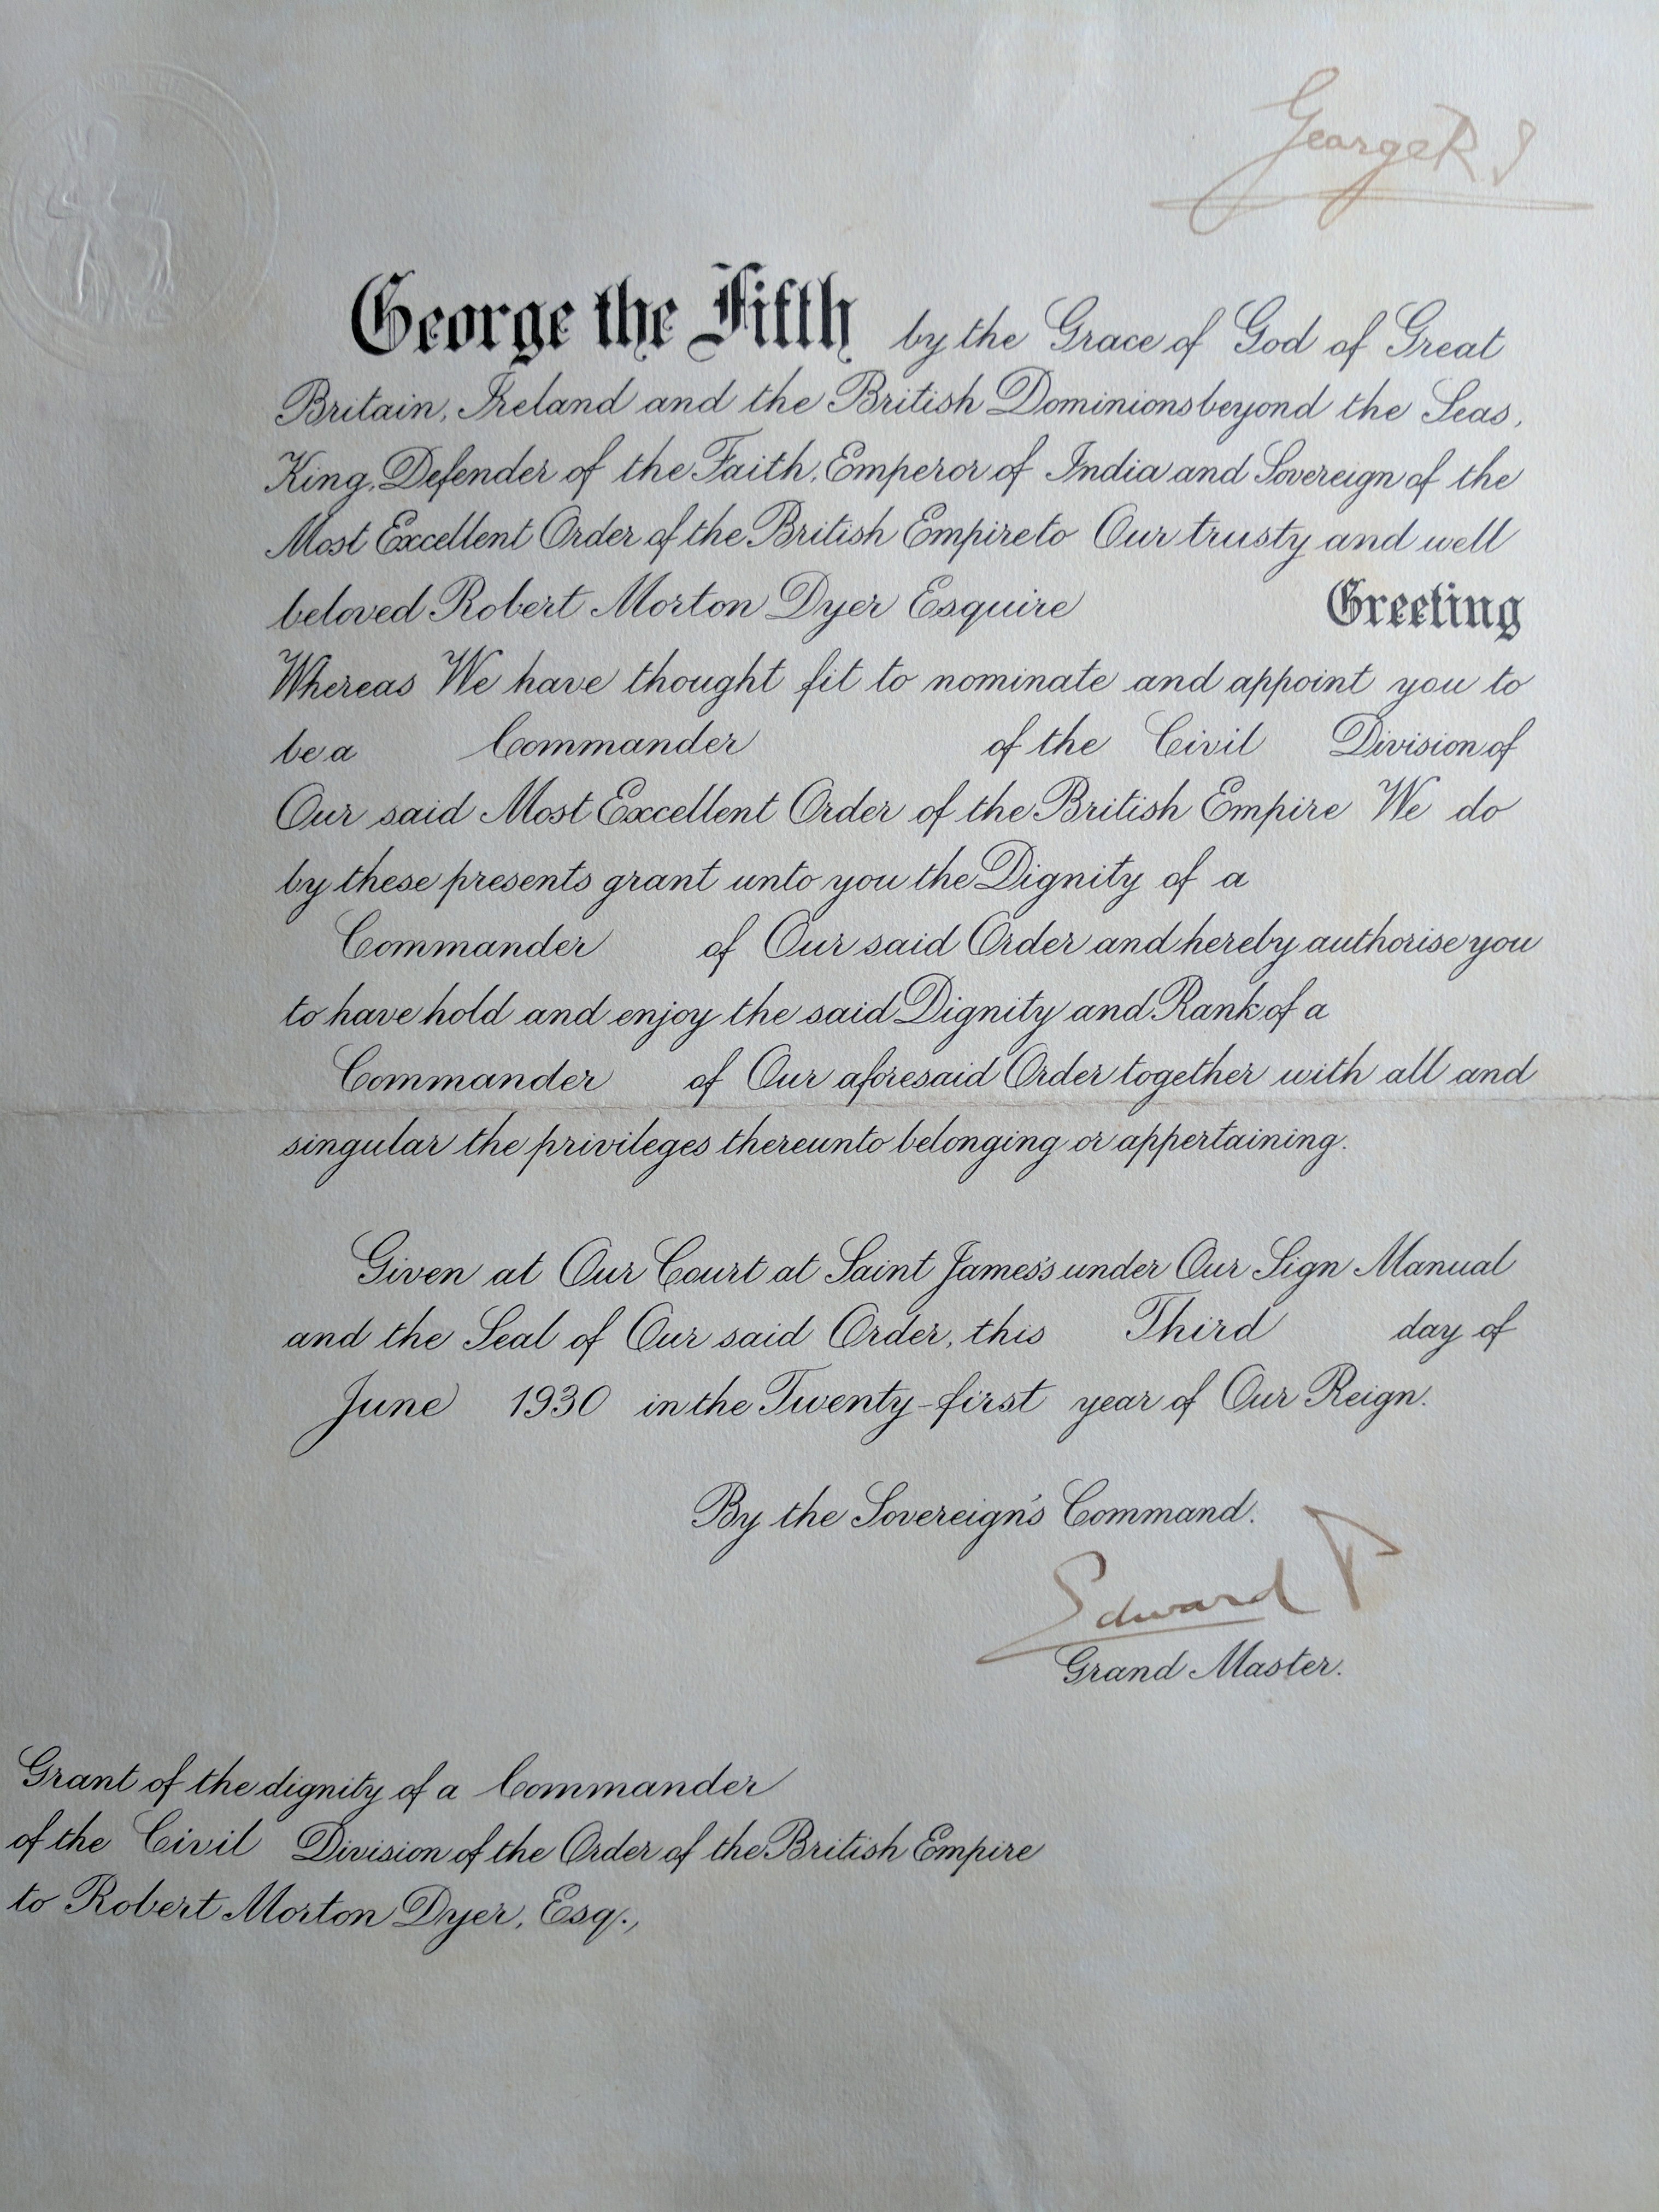 George R I
George the Fifth by the Grace of God of Great
Britain, Ireland and the British Dominions beyond the Seas,
King, Defender of the Faith, Emperor of India and Sovereign of the
Most Excellent Order of the British Empire to Our trusty and well
beloved Robert Morton Dyer Esquire Greeting
Whereas We have thought fit to nominate and appoint you to
be a Commander of the Civil Division of
Our said Most Excellent Order of the British Empire We do
by these presents grant unto you the Dignity of a
Commander of Our said Order and hereby authorise you
to have hold and enjoy the said Dignity and Rank of a
Commander of Our aforesaid Order together with all and
singular the privileges thereunto belonging or appertaining.
Given at Our Court at Saint James's under Our Sign Manual
and the Seal of Our said Order, this Third day of
June 1930 in the Twenty-first year of Our Reign.
By the Sovereign's Command.
Edward P
Grand Master.
Grant of the dignity of a Commander
of the Civil Division of the Order of the British Empire
to Robert Morton Dyer, Esq.,